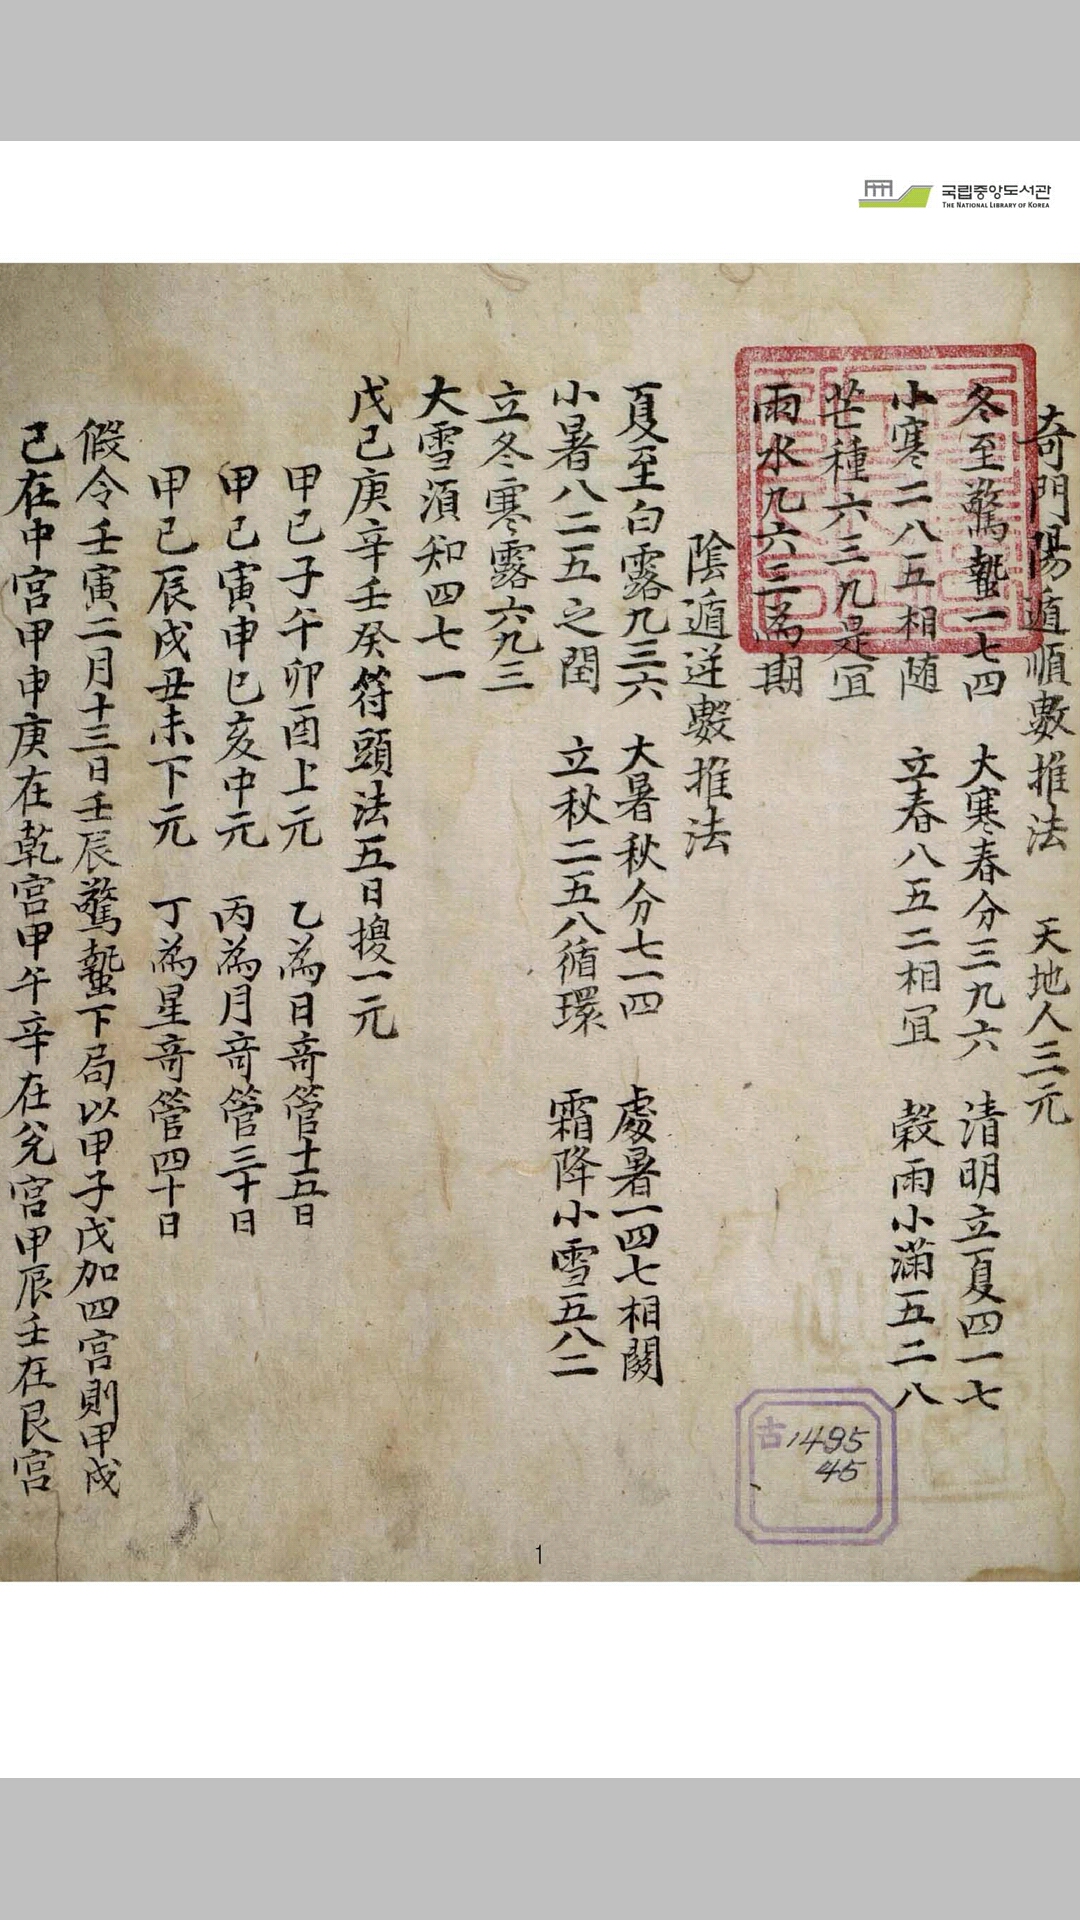 국립중앙도서관
THE NATIONAL LIBRARY OF KOREA
奇門陽遁順數推法 天地人三元
冬至驚蟄一七四 大寒春分三九六 清明立夏四一七
小寒二八五相随 立春八五二相冝 穀雨小滿五二八
芒種六三九是冝
雨水九六三為期
陰遁逆數推法
夏至白露九三六 大暑秋分七一四 處暑一四七相関
小暑八二五之間 立秋二五八循環 霜降小雪五八二
立冬寒露六九三
大雪須知四七一
戊己庚辛壬癸符頭法五日換一元
甲己子午卯酉上元 乙為日竒管十五日
甲己寅申巳亥中元 丙為月竒管三十日
甲己辰戌丑未下元 丁為星竒管四十日
假令壬寅二月十三日壬辰驚蟄下局以甲子戊加四宮則甲戌
己在中宮甲申庚在乾宮甲午辛在兌宮甲辰壬在艮宮
古1495
45
1